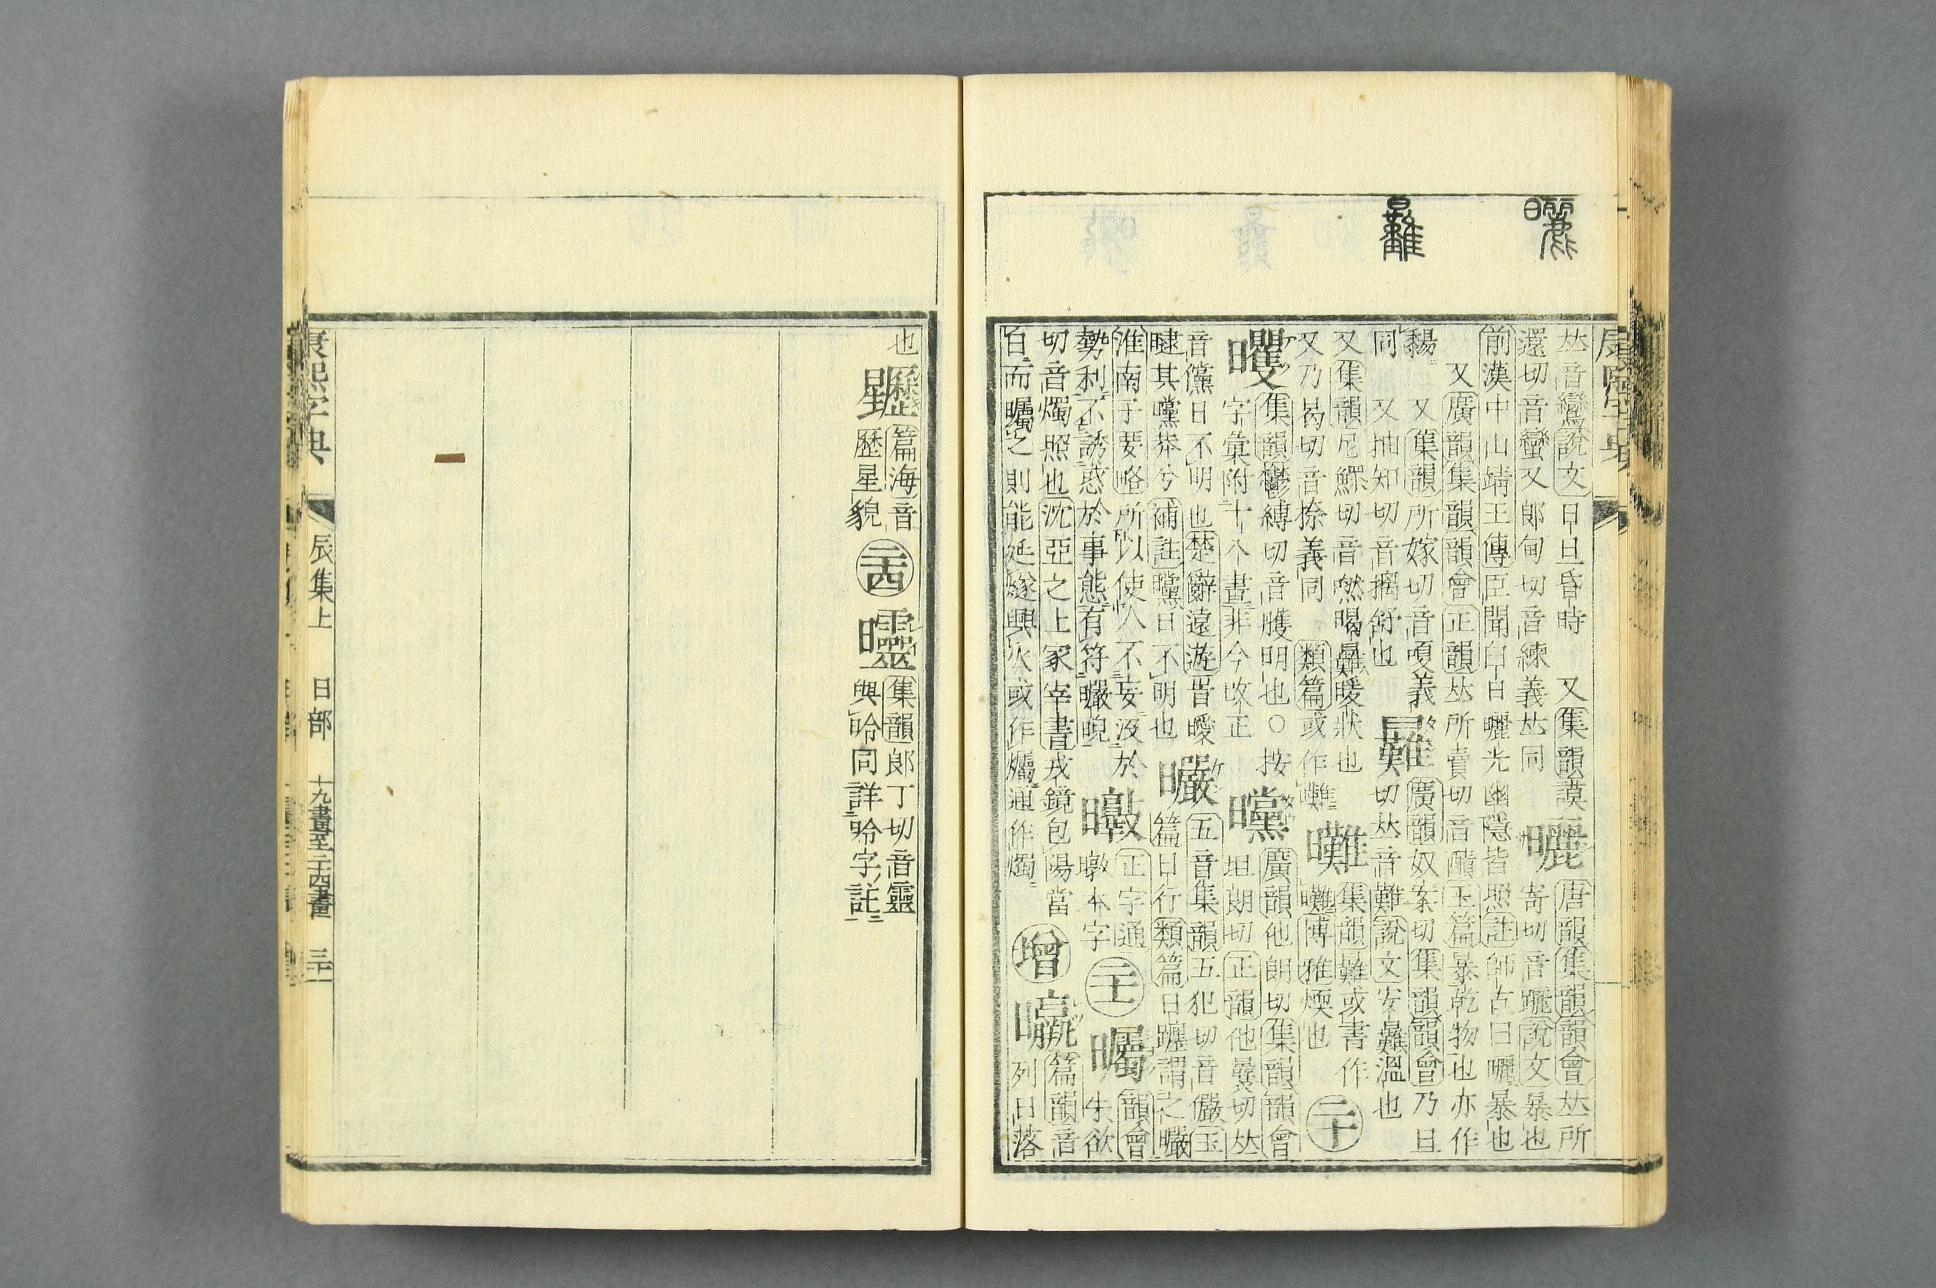 𠀤音鸞說文日旦昏時 又集韻謨
還切音蠻又郞甸切音練義𠀤同
曬
唐韻集韻韻會𠀤所
寄切音䍦說文暴也
前漢中山靖王傳臣聞白日曬光幽隱皆照註師古曰曬暴也
又廣韻集韻韻會正韻𠀤所賣切音灑玉篇暴乾物也亦作
又集韻所嫁切音嗄義
同 又抽知切音摛舒也
㬮
廣韻奴案切集韻韻會乃旦
切𠀤音難說文安㬮溫也
又集韻尼鰥切音 㬮暖狀也
又乃曷切音捺義同 類篇或作
集韻難或書作
博雅煗也
二十
集韻鬱縛切音雘明也○按
字彙附十八畫非今改正
曭
廣韻他朗切集韻韻會
坦朗切正韻他曩切𠀤
音儻日不明也楚辭遠遊旹曖
曃其曭莽兮補註曭日不明也
曮
五音集韻五犯切音儼玉
篇日行類篇日躔謂之曮
淮南子要略所以使人不妄沒於
勢利不誘惑於事態有符曮晲
正字通
暾本字
二十一
曯
韻會
朱欲
切音燭照也沈亞之上冢宰書戎鏡包陽當
白而曯之則能延燧興火或作爥通作燭
增
篇韻音
列日落
也
篇海音
歷星貌
二十四
集韻郞丁切音靈
與昤同詳昤字註
康熙字典
辰集上
日部
十九畫至二十四畫